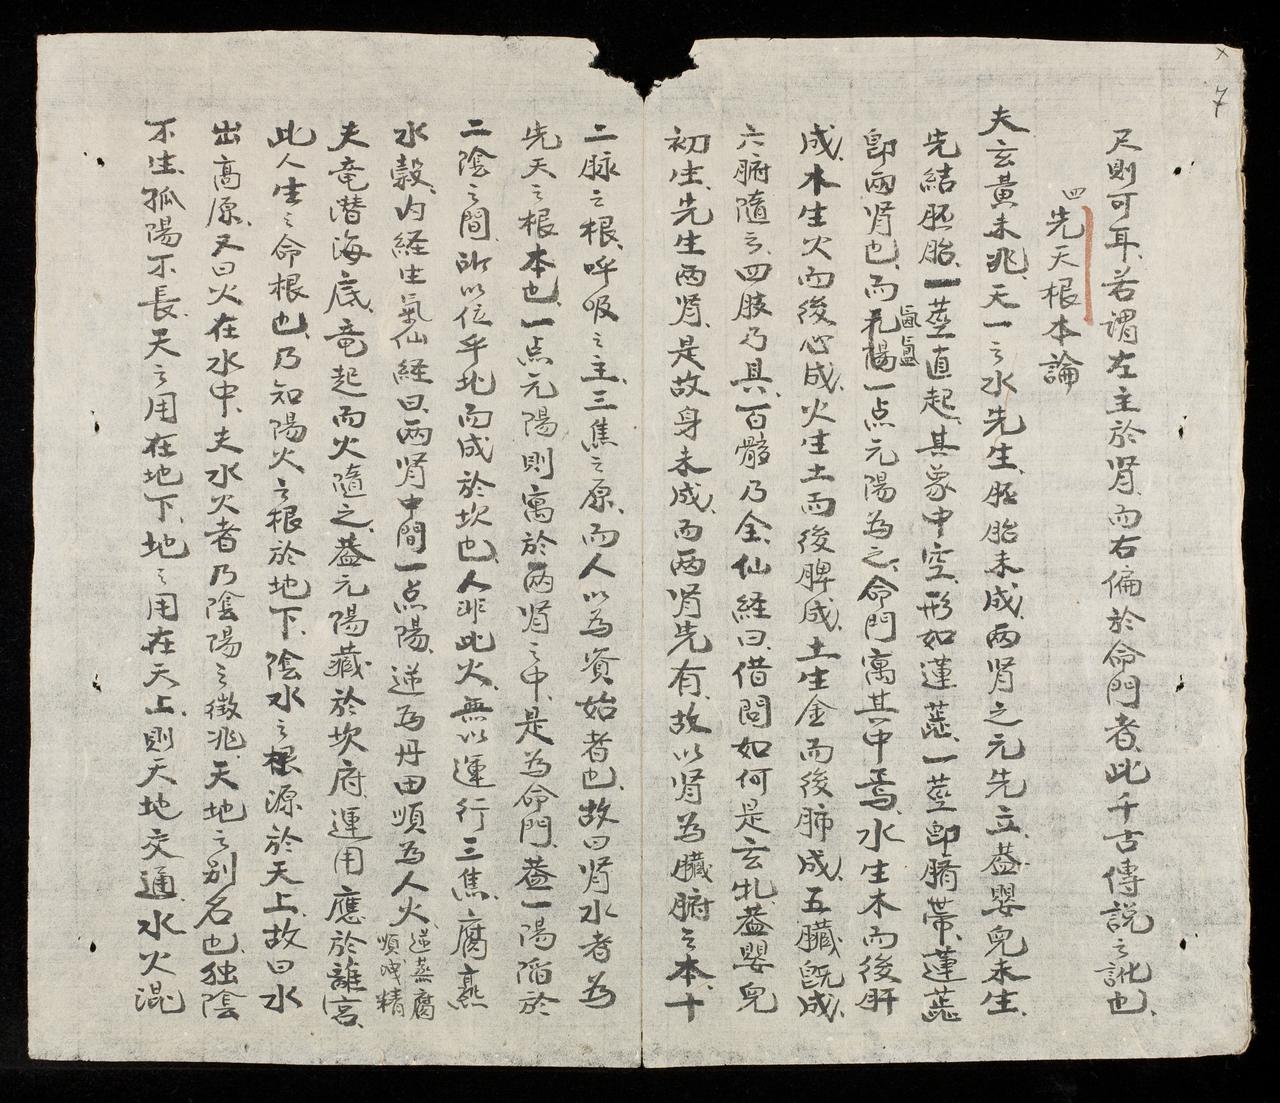 7
尺則可耳、若謂左主於肾、而右偏於命門者、此千古傳説之訛也、
四 先天根本論
夫玄黄未兆、天一之水先生、胚胎未成、兩肾之元先立、蓋嬰兒未生、
先結胚胎、一莖直起、其象中空、形如蓮蕋、一莖即臍蒂、蓮蕋
即兩肾也、而一点元陽為之、命門寓其中焉、水生木而後肝
成、木生火而後心成、火生土而後脾成、土生金而後肺成、五臟既成、
六腑隨之、四肢乃具、百骸乃全、仙経曰、借問如何是玄牝、蓋嬰兒
初生、先生两肾、是故身未成、而两肾先有、故以肾為臟腑之本、十
二脉之根、呼吸之主、三焦之原、而人以為資始者也、故曰肾水者為
先天之根本也、一点元陽則寓於两肾之中、是為命門、蓋一陽陷於
二陰之間、所以位乎北而成於坎也、人非此火、無以運行三焦、腐熟
水穀、内経生氣仙経曰、两肾中間一点陽、逆為丹田順為人火、逆蒸腐順成精
夫竜潜海底、竜起而火隨之、蓋元陽藏於坎府、運用應於離宮、
此人生之命根也、乃知陽火之根於地下、陰水之根源於天上、故曰水
出高原、又曰火在水中、夫水火者乃陰陽之徴兆、天地之别名也、独陰
不生、孤陽不長、天之用在地下、地之用在天上、則天地交通、水火混